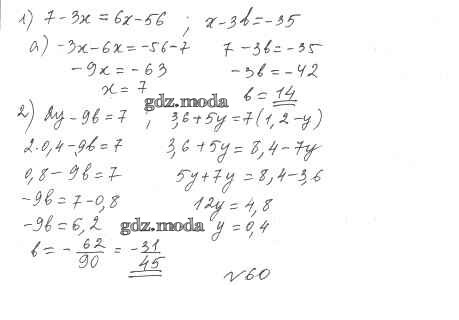 1) 7 - 3x = 6x - 56 ; x - 3b = -35
a) -3x - 6x = -56 - 7 7 - 3b = -35
-9x = -63 -3b = -42
x = 7 b = 14
gdz.moda
2) 2y - 9b = 7 ; 3,6 + 5y = 7(1,2 - y)
2·0,4 - 9b = 7 3,6 + 5y = 8,4 - 7y
0,8 - 9b = 7 5y + 7y = 8,4 - 3,6
-9b = 7 - 0,8 12y = 4,8
-9b = 6,2 gdz.moda y = 0,4
b = - 62/90 = - 31/45
~60